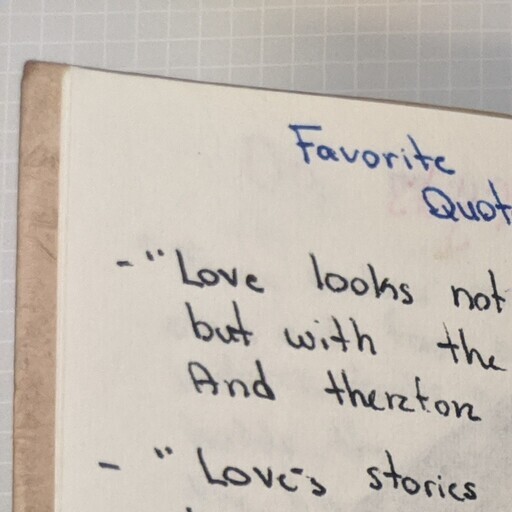 Favorite
Quot
- "Love looks not
but with the
And therefore
- " Love's stories